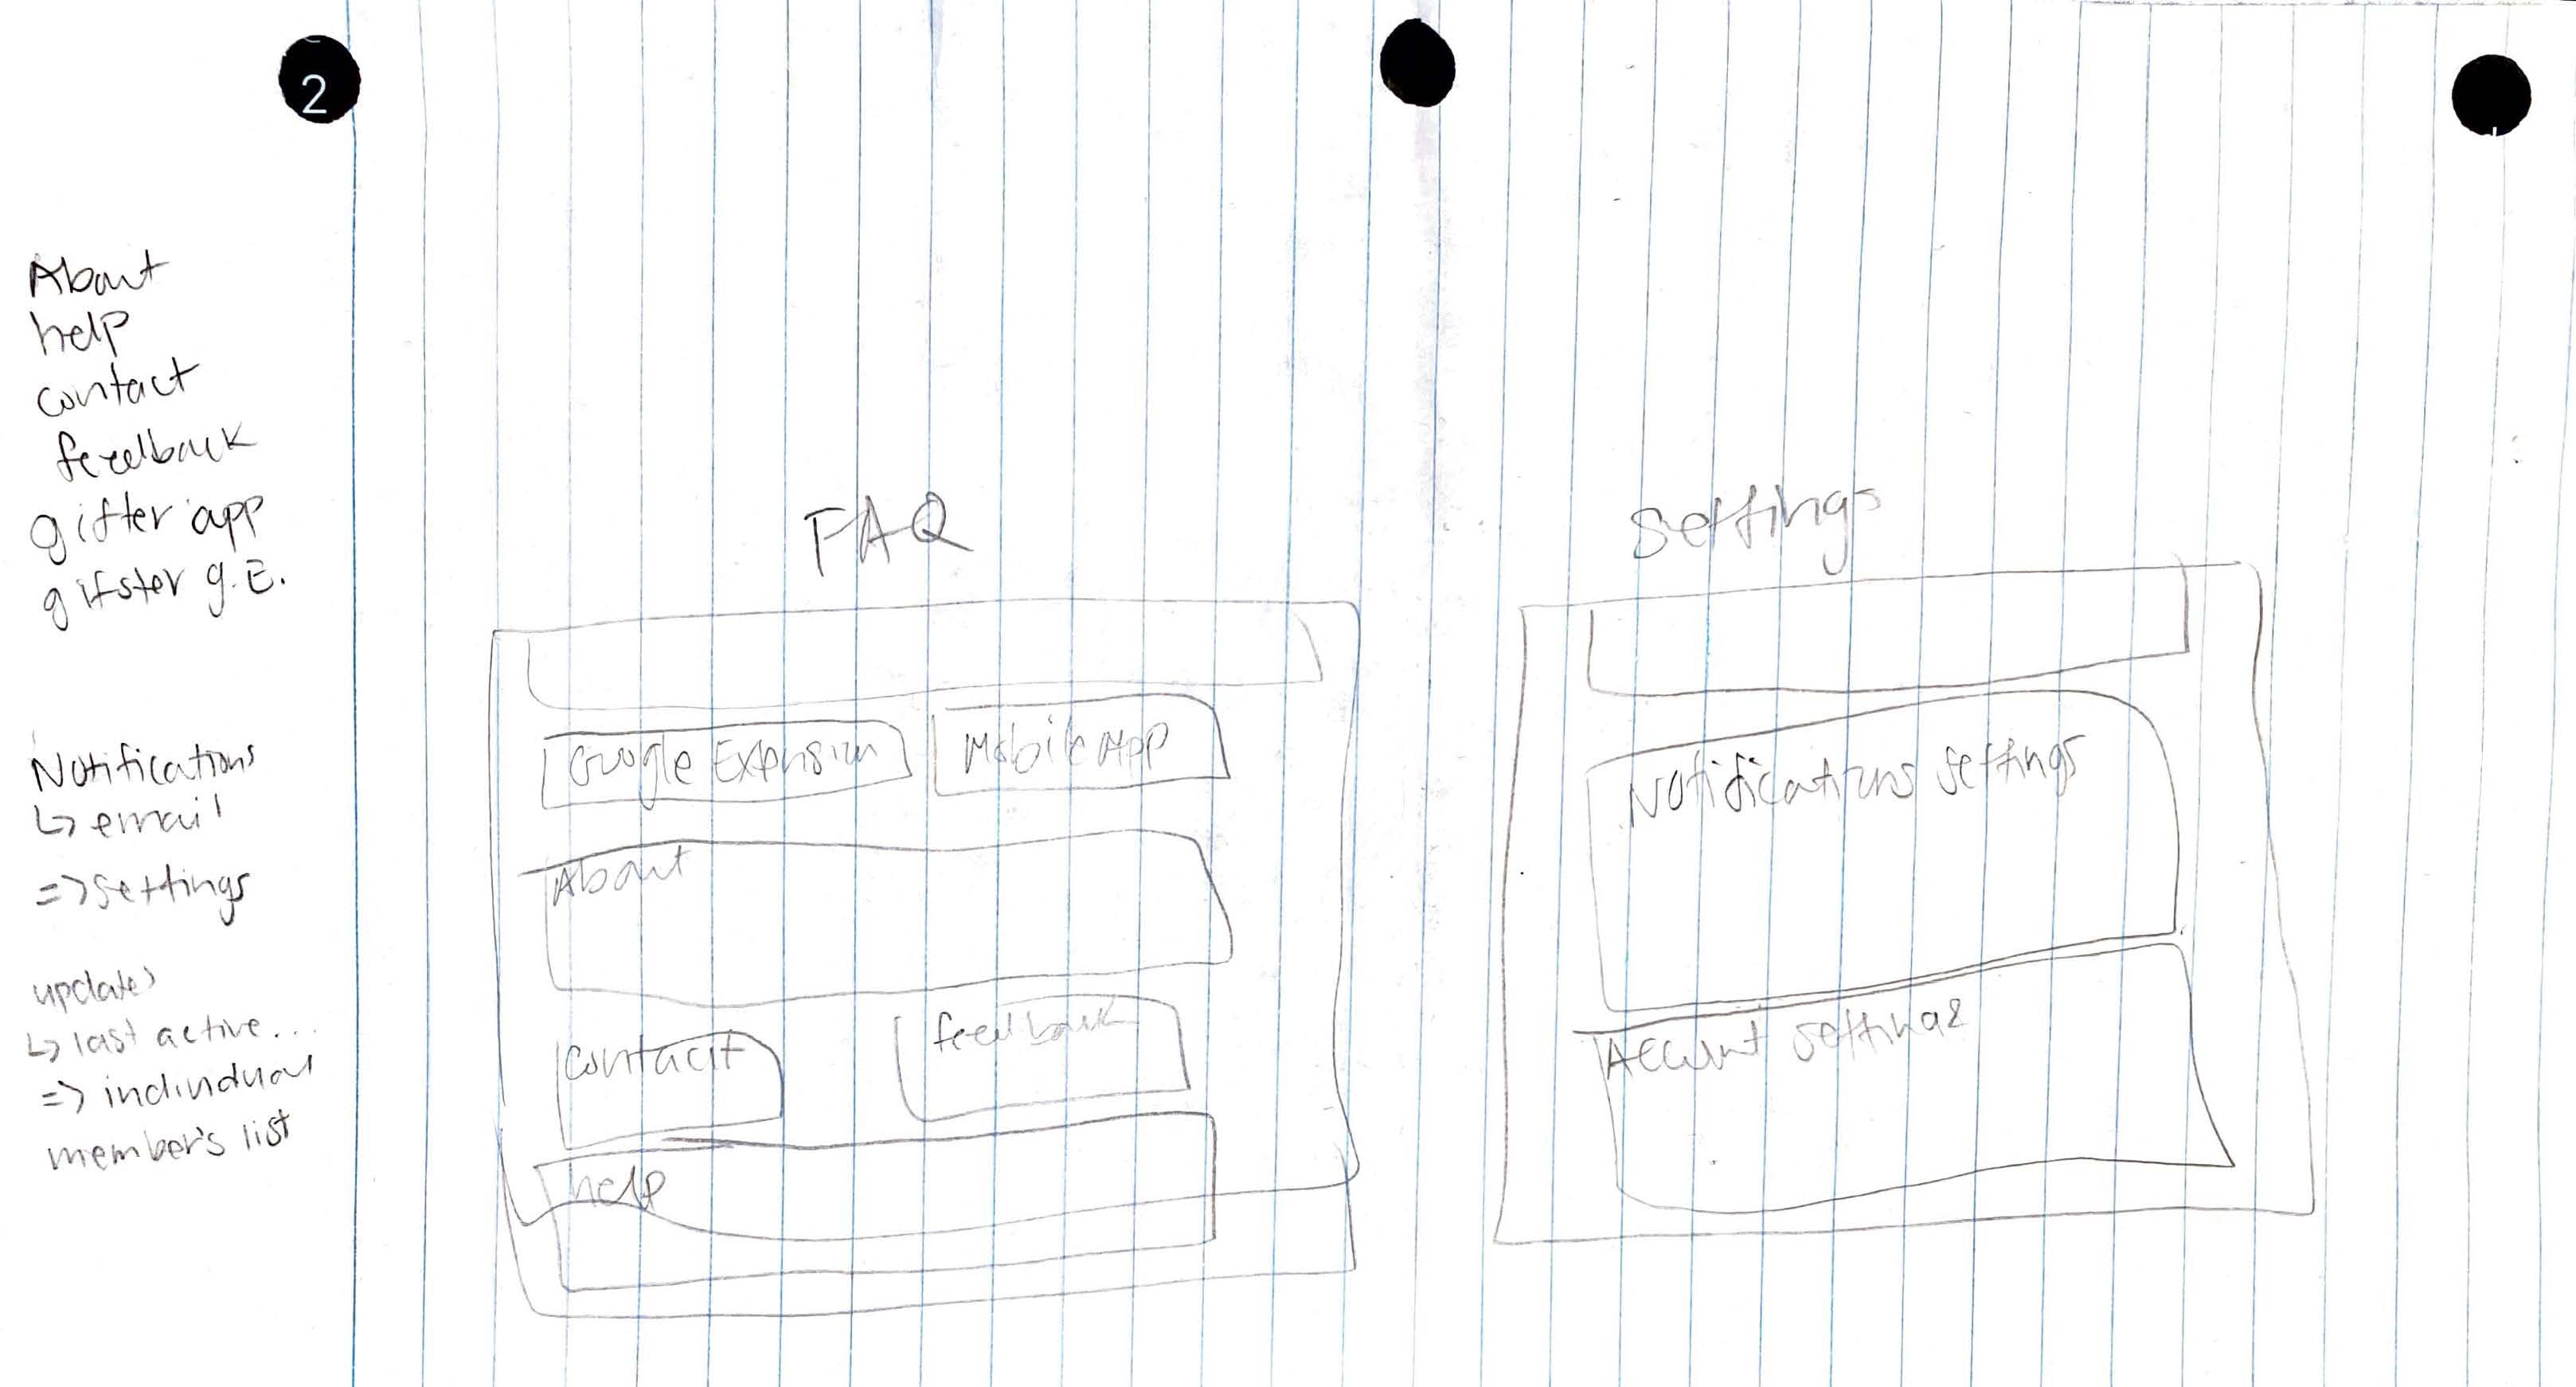 2
About
help
contact
feedback
gifter app
gifster g.E.
Notifications
↳ email
=> settings
updates
↳ last active...
=> individual
member's list
FAQ
Google Expension
Mobile App
About
contact
feedback
help
Settings
Notifications settings
Account settings